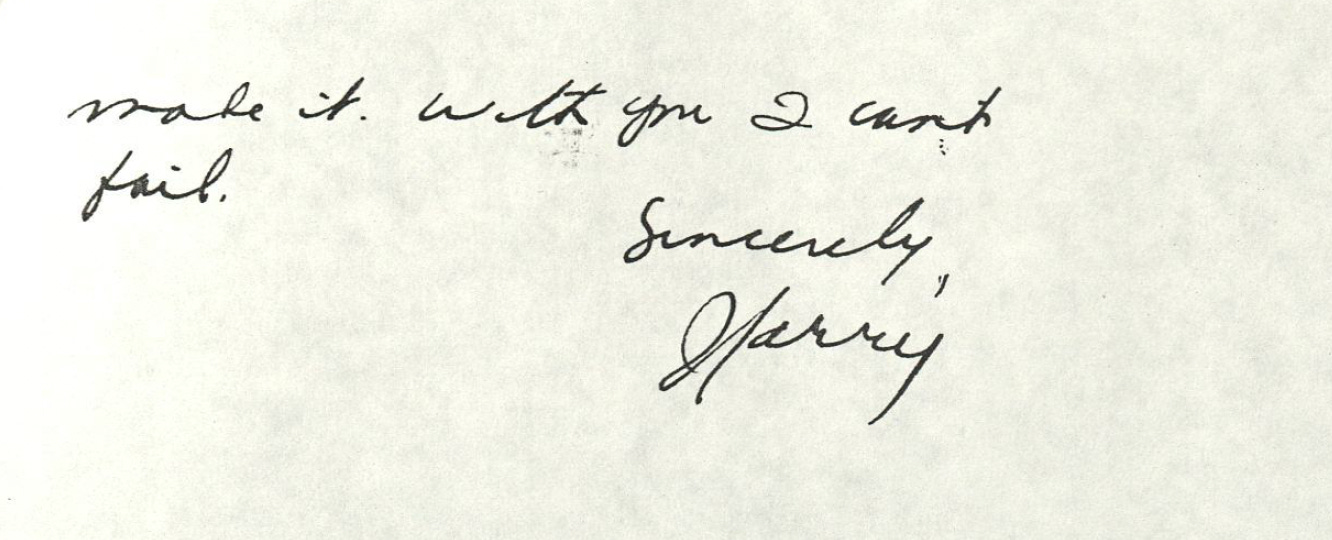 make it. with you I can't
fail.
Sincerely,
Harry